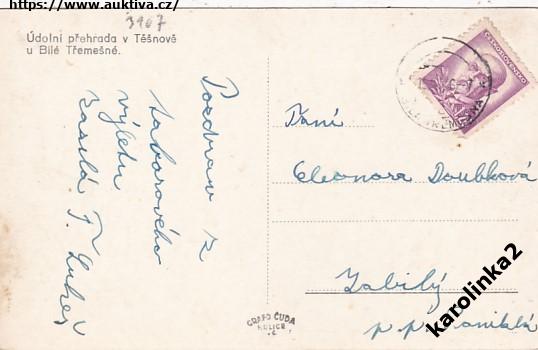 https://www.auktiva.cz/
3907
Údolní přehrada v Těšnově
u Bílé Třemešné.
Pozdrav z
táborového
výletu
zasílá F. Lukeš
ČESKOSLOVENSKO
Paní
Eleonora Doubková
Zabilý
p. p.
GRAFO ČUDA
HOLICE
karolinka2